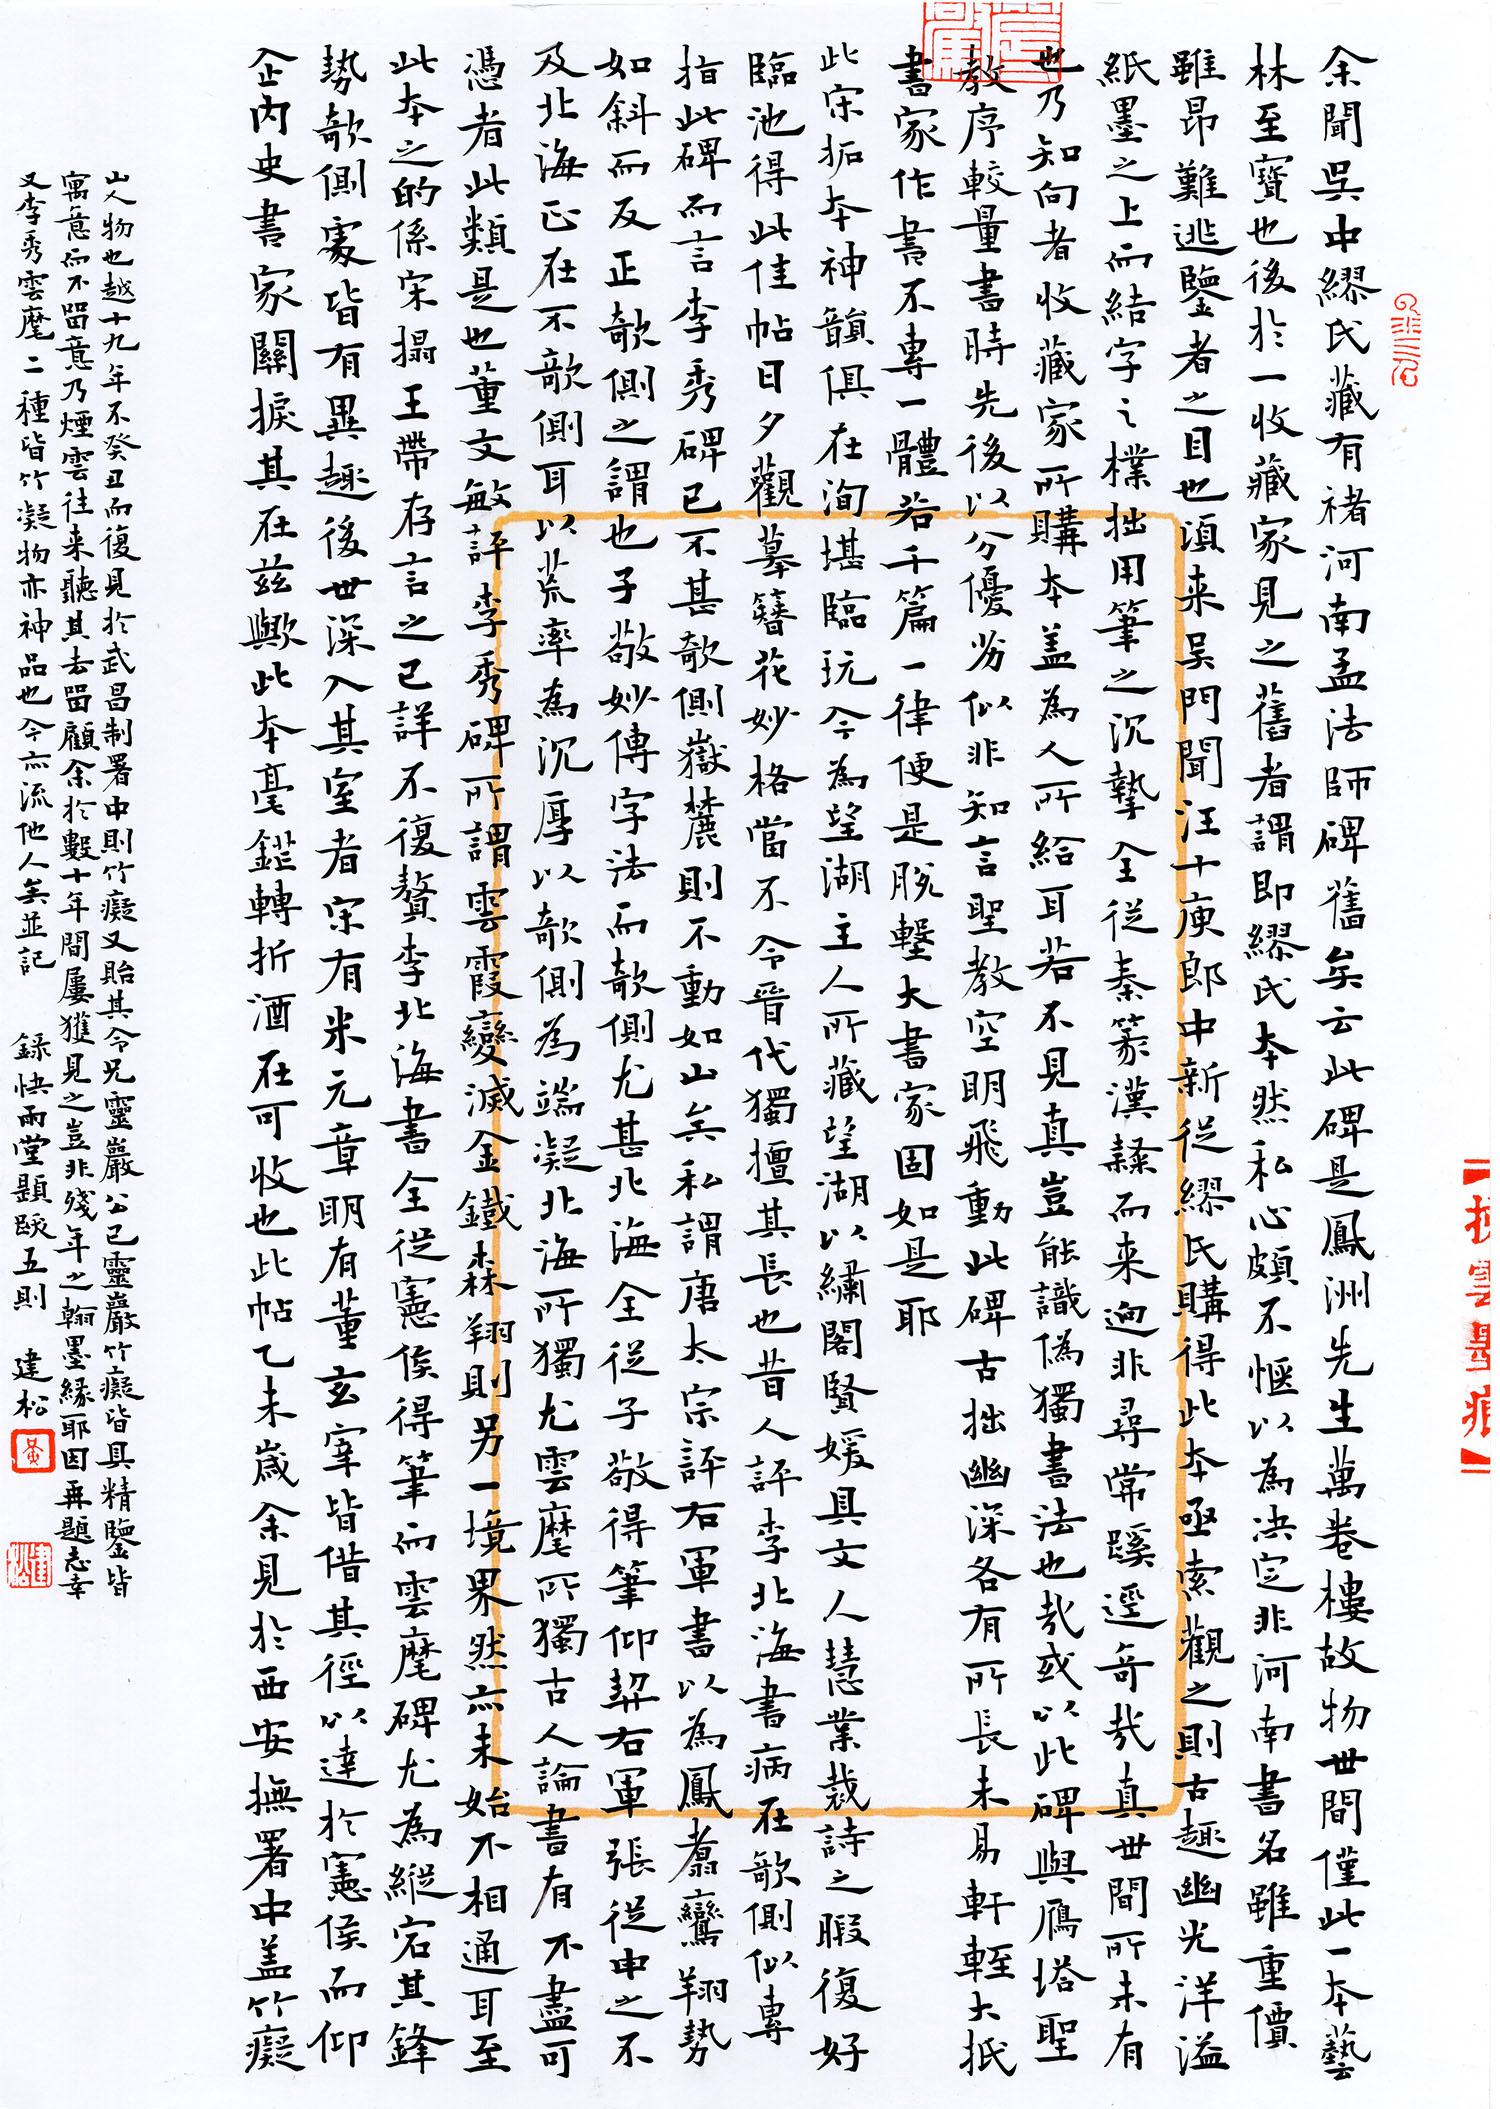 余聞吳中繆氏藏有褚河南孟法師碑舊矣云此碑是鳳洲先生萬卷樓故物世間僅此一本藝
林至寶也後於一收藏家見之舊者謂即繆氏本然私心頗不愜以為決定非河南書名雖重價
雖昂難逃鑒者之目也頃来吳門聞汪十庚郎中新從繆氏購得此本亟索觀之則古趣幽光洋溢
紙墨之上而結字之樸拙用筆之沉摯全從秦篆漢隸而来迥非尋常蹊逕奇哉真世間所未有
也乃知向者收藏家所購本蓋為人所給耳若不見真豈能識偽獨書法也哉或以此碑與鴈塔聖
教序較量書時先後以分優劣似非知言聖教空明飛動此碑古拙幽深各有所長未易軒輊大抵
書家作書不專一體若千篇一律便是脫墼大書家固如是耶
此宋拓本神韻俱在洵堪臨玩今為望湖主人所藏望湖以繡閣賢媛具文人慧業裁詩之暇復好
臨池得此佳帖日夕觀摹簪花妙格當不令晉代獨擅其長也昔人評李北海書病在欹側似專
指此碑而言李秀碑已不甚欹側嶽麓則不動如山矣私謂唐太宗評右軍書以為鳳翥鸞翔勢
如斜而反正欹側之謂也子敬妙傳字法而欹側尤甚北海全從子敬得筆仰契右軍張從申之不
及北海正在不欹側耳以荒率為沉厚以欹側為端凝北海所獨尤雲麾所獨古人論書有不盡可
憑者此類是也董文敏評李秀碑所謂雲霞變滅金鐵森翔則另一境界然亦未始不相通耳至
此本之的係宋搨王帶存言之已詳不復贅李北海書全從憲侯得筆而雲麾碑尤為縱宕其鋒
勢欹側處皆有異趣後世深入其室者宋有米元章明有董玄宰皆借其徑以達於憲侯而仰
企內史書家關捩其在茲歟此本毫鋩轉折酒在可收也此帖乙未歲余見於西安撫署中蓋竹癡
山人物也越十九年不癸丑而復見於武昌制署中則竹癡又貽其令兄靈巖公已靈巖竹癡皆具精鑒皆
寓意而不留意乃煙雲往来聽其去留顧余於數十年間屢獲見之豈非殘年之翰墨緣耶因再題志幸
又李秀雲麾二種皆竹凝物亦神品也今亦流他人矣並記 錄快雨堂題跋五則 建松